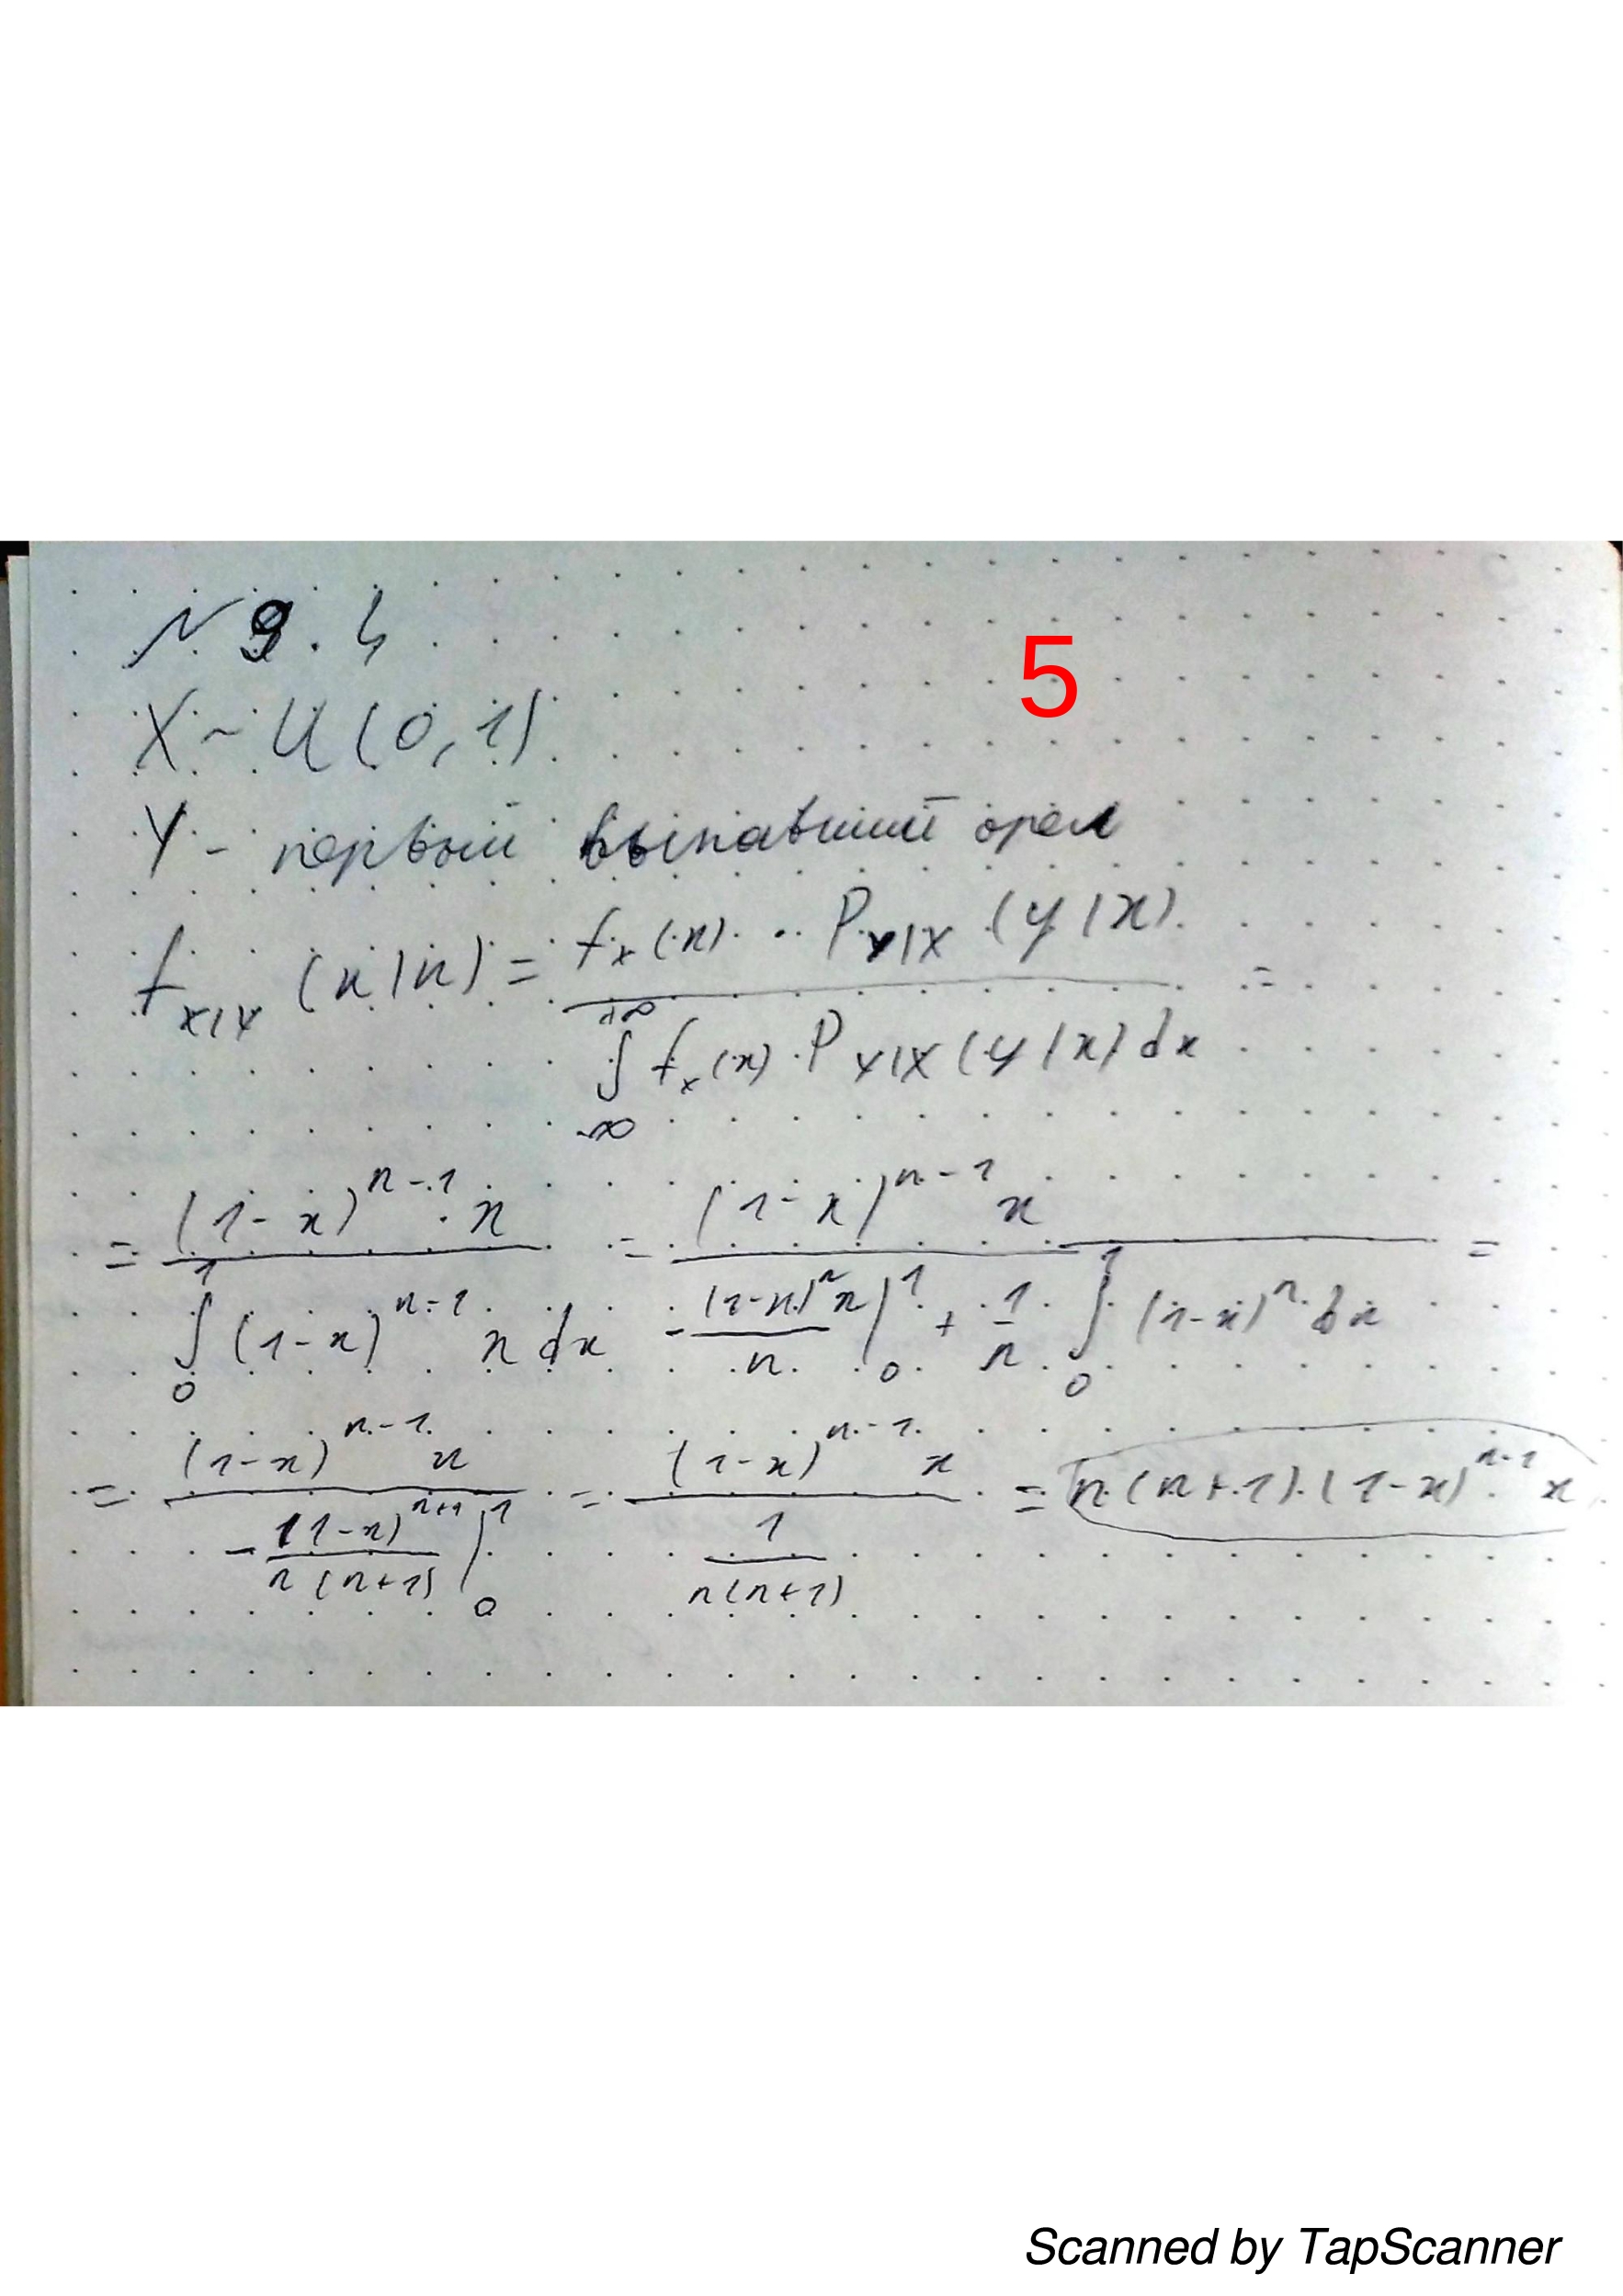 № 9.4
5
X ~ U(0,1)
Y - первый выпавший орел
f_{X|Y} (x|n) = \frac{f_x(x) · P_{Y|X} (y|x)}{\int_{-∞}^{+∞} f_x(x) · P_{Y|X} (y|x) dx} =
= \frac{(1-x)^{n-1} · x}{\int_0^1 (1-x)^{n-1} x dx} = \frac{(1-x)^{n-1} x}{-\frac{(1-x)^n x}{n} |_0^1 + \frac{1}{n} \int_0^1 (1-x)^n dx} =
= \frac{(1-x)^{n-1} x}{-\frac{(1-x)^{n+1}}{n(n+1)} |_0^1} = \frac{(1-x)^{n-1} x}{\frac{1}{n(n+1)}} = n(n+1)·(1-x)^{n-1} x
Scanned by TapScanner